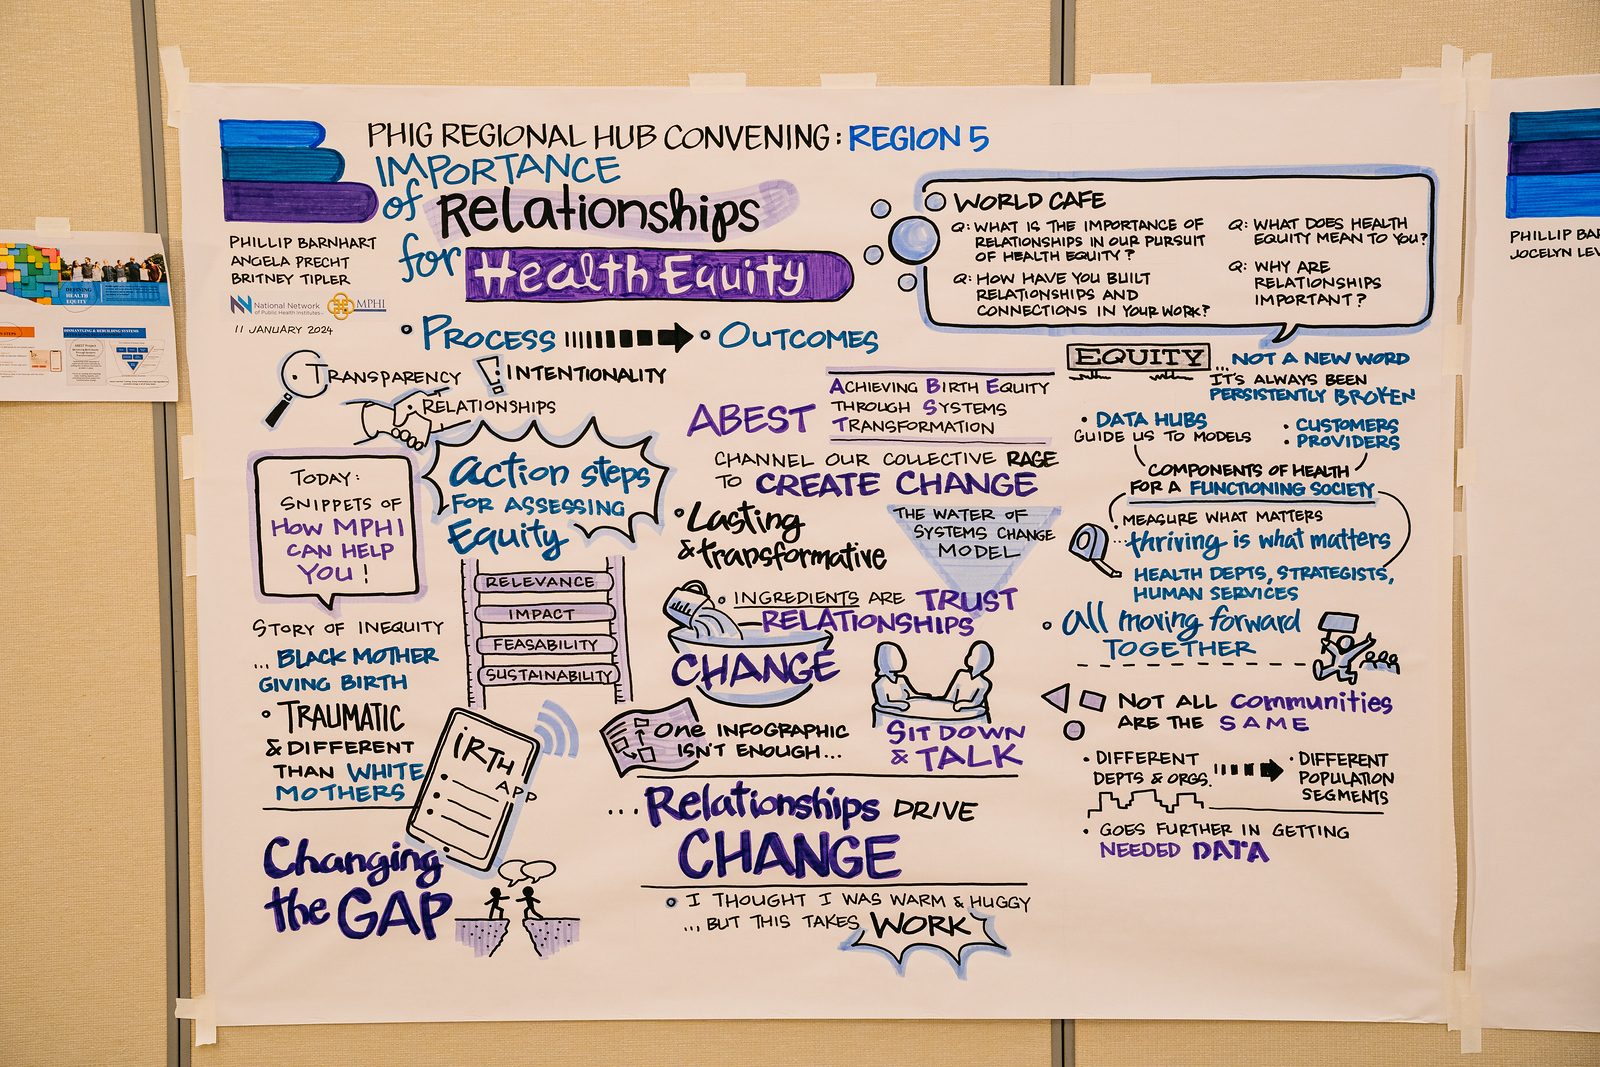 PHIG REGIONAL HUB CONVENING: REGION 5
IMPORTANCE
of Relationships
for Health Equity
PHILLIP BARNHART
ANGELA PRECHT
BRITNEY TIPLER
National Network
of Public Health Institutes
MPHI
11 JANUARY 2024
• PROCESS
• OUTCOMES
WORLD CAFE
Q: WHAT IS THE IMPORTANCE OF
RELATIONSHIPS IN OUR PURSUIT
OF HEALTH EQUITY?
Q: HOW HAVE YOU BUILT
RELATIONSHIPS AND
CONNECTIONS IN YOUR WORK?
Q: WHAT DOES HEALTH
EQUITY MEAN TO YOU?
Q: WHY ARE
RELATIONSHIPS
IMPORTANT?
TRANSPARENCY
! INTENTIONALITY
RELATIONSHIPS
TODAY:
SNIPPETS OF
HOW MPHI
CAN HELP
YOU!
Action steps
FOR ASSESSING
Equity
RELEVANCE
IMPACT
FEASABILITY
SUSTAINABILITY
STORY OF INEQUITY
... BLACK MOTHER
GIVING BIRTH
• TRAUMATIC
& DIFFERENT
THAN WHITE
MOTHERS
iRTH
APP
Changing
the GAP
ABEST
ACHIEVING BIRTH EQUITY
THROUGH SYSTEMS
TRANSFORMATION
CHANNEL OUR COLLECTIVE RAGE
TO CREATE CHANGE
• Lasting
& transformative
THE WATER OF
SYSTEMS CHANGE
MODEL
• INGREDIENTS ARE TRUST
RELATIONSHIPS
CHANGE
One INFOGRAPHIC
ISN'T ENOUGH...
SIT DOWN
& TALK
... Relationships DRIVE
CHANGE
• I THOUGHT I WAS WARM & HUGGY
... BUT THIS TAKES WORK
EQUITY
... NOT A NEW WORD
IT'S ALWAYS BEEN
PERSISTENTLY BROKEN
• DATA HUBS
GUIDE US TO MODELS
• CUSTOMERS
• PROVIDERS
COMPONENTS OF HEALTH
FOR A FUNCTIONING SOCIETY
MEASURE WHAT MATTERS
... thriving is what matters
HEALTH DEPTS, STRATEGISTS,
HUMAN SERVICES
• All moving forward
TOGETHER
NOT ALL communities
ARE THE SAME
• DIFFERENT
DEPTS & ORGS.
• DIFFERENT
POPULATION
SEGMENTS
• GOES FURTHER IN GETTING
NEEDED DATA
DEFINING
HEALTH
EQUITY
DISMANTLING & REBUILDING SYSTEMS
PHILLIP BAR
JOCELYN LEV